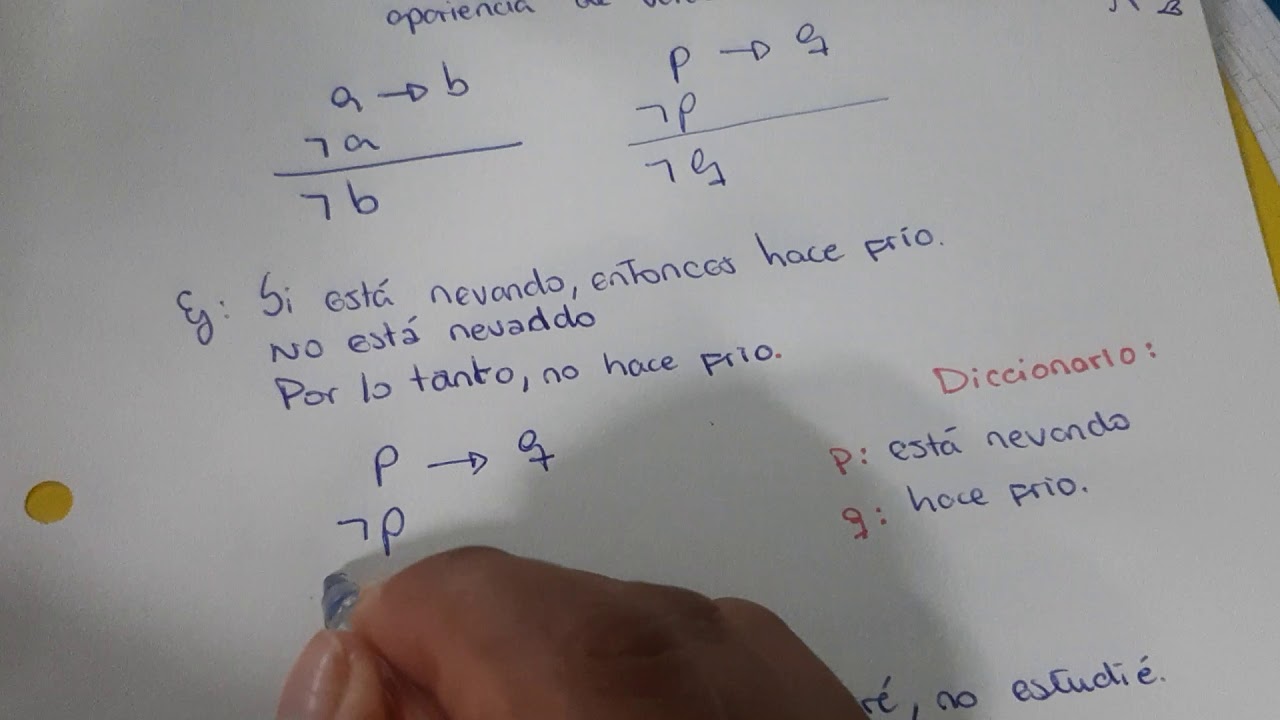 apariencia de
a → b
¬a
¬b
p → q
¬p
¬q
Ej: Si está nevando, entonces hace frío.
No está nevaddo
Por lo tanto, no hace frio.
p → q
¬p
Diccionario:
p: está nevando
q: hace frio.
ré, no estudié.